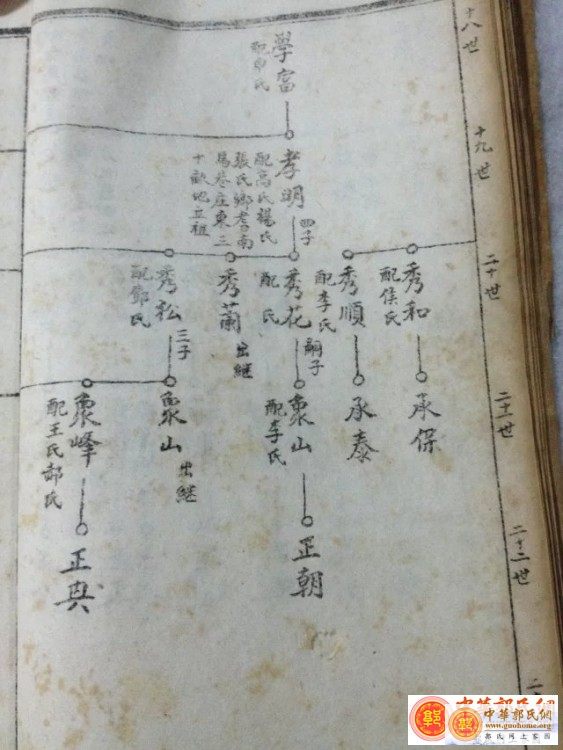 十八世
學富
配申氏
十九世
孝明
配高氏楊氏
張氏鄉耆南
馬巷庄東三
十畝地立祖
四子
二十世
秀和
配侯氏
秀順
配李氏
秀花
配 氏
嗣子
秀蘭
出継
秀松
配鄧氏
三子
二十一世
承保
承泰
象山
配李氏
象山
出継
象峰
配王氏郝氏
二十二世
正朝
正興
中華郭氏網
www.guohome.com
郭氏网上家园